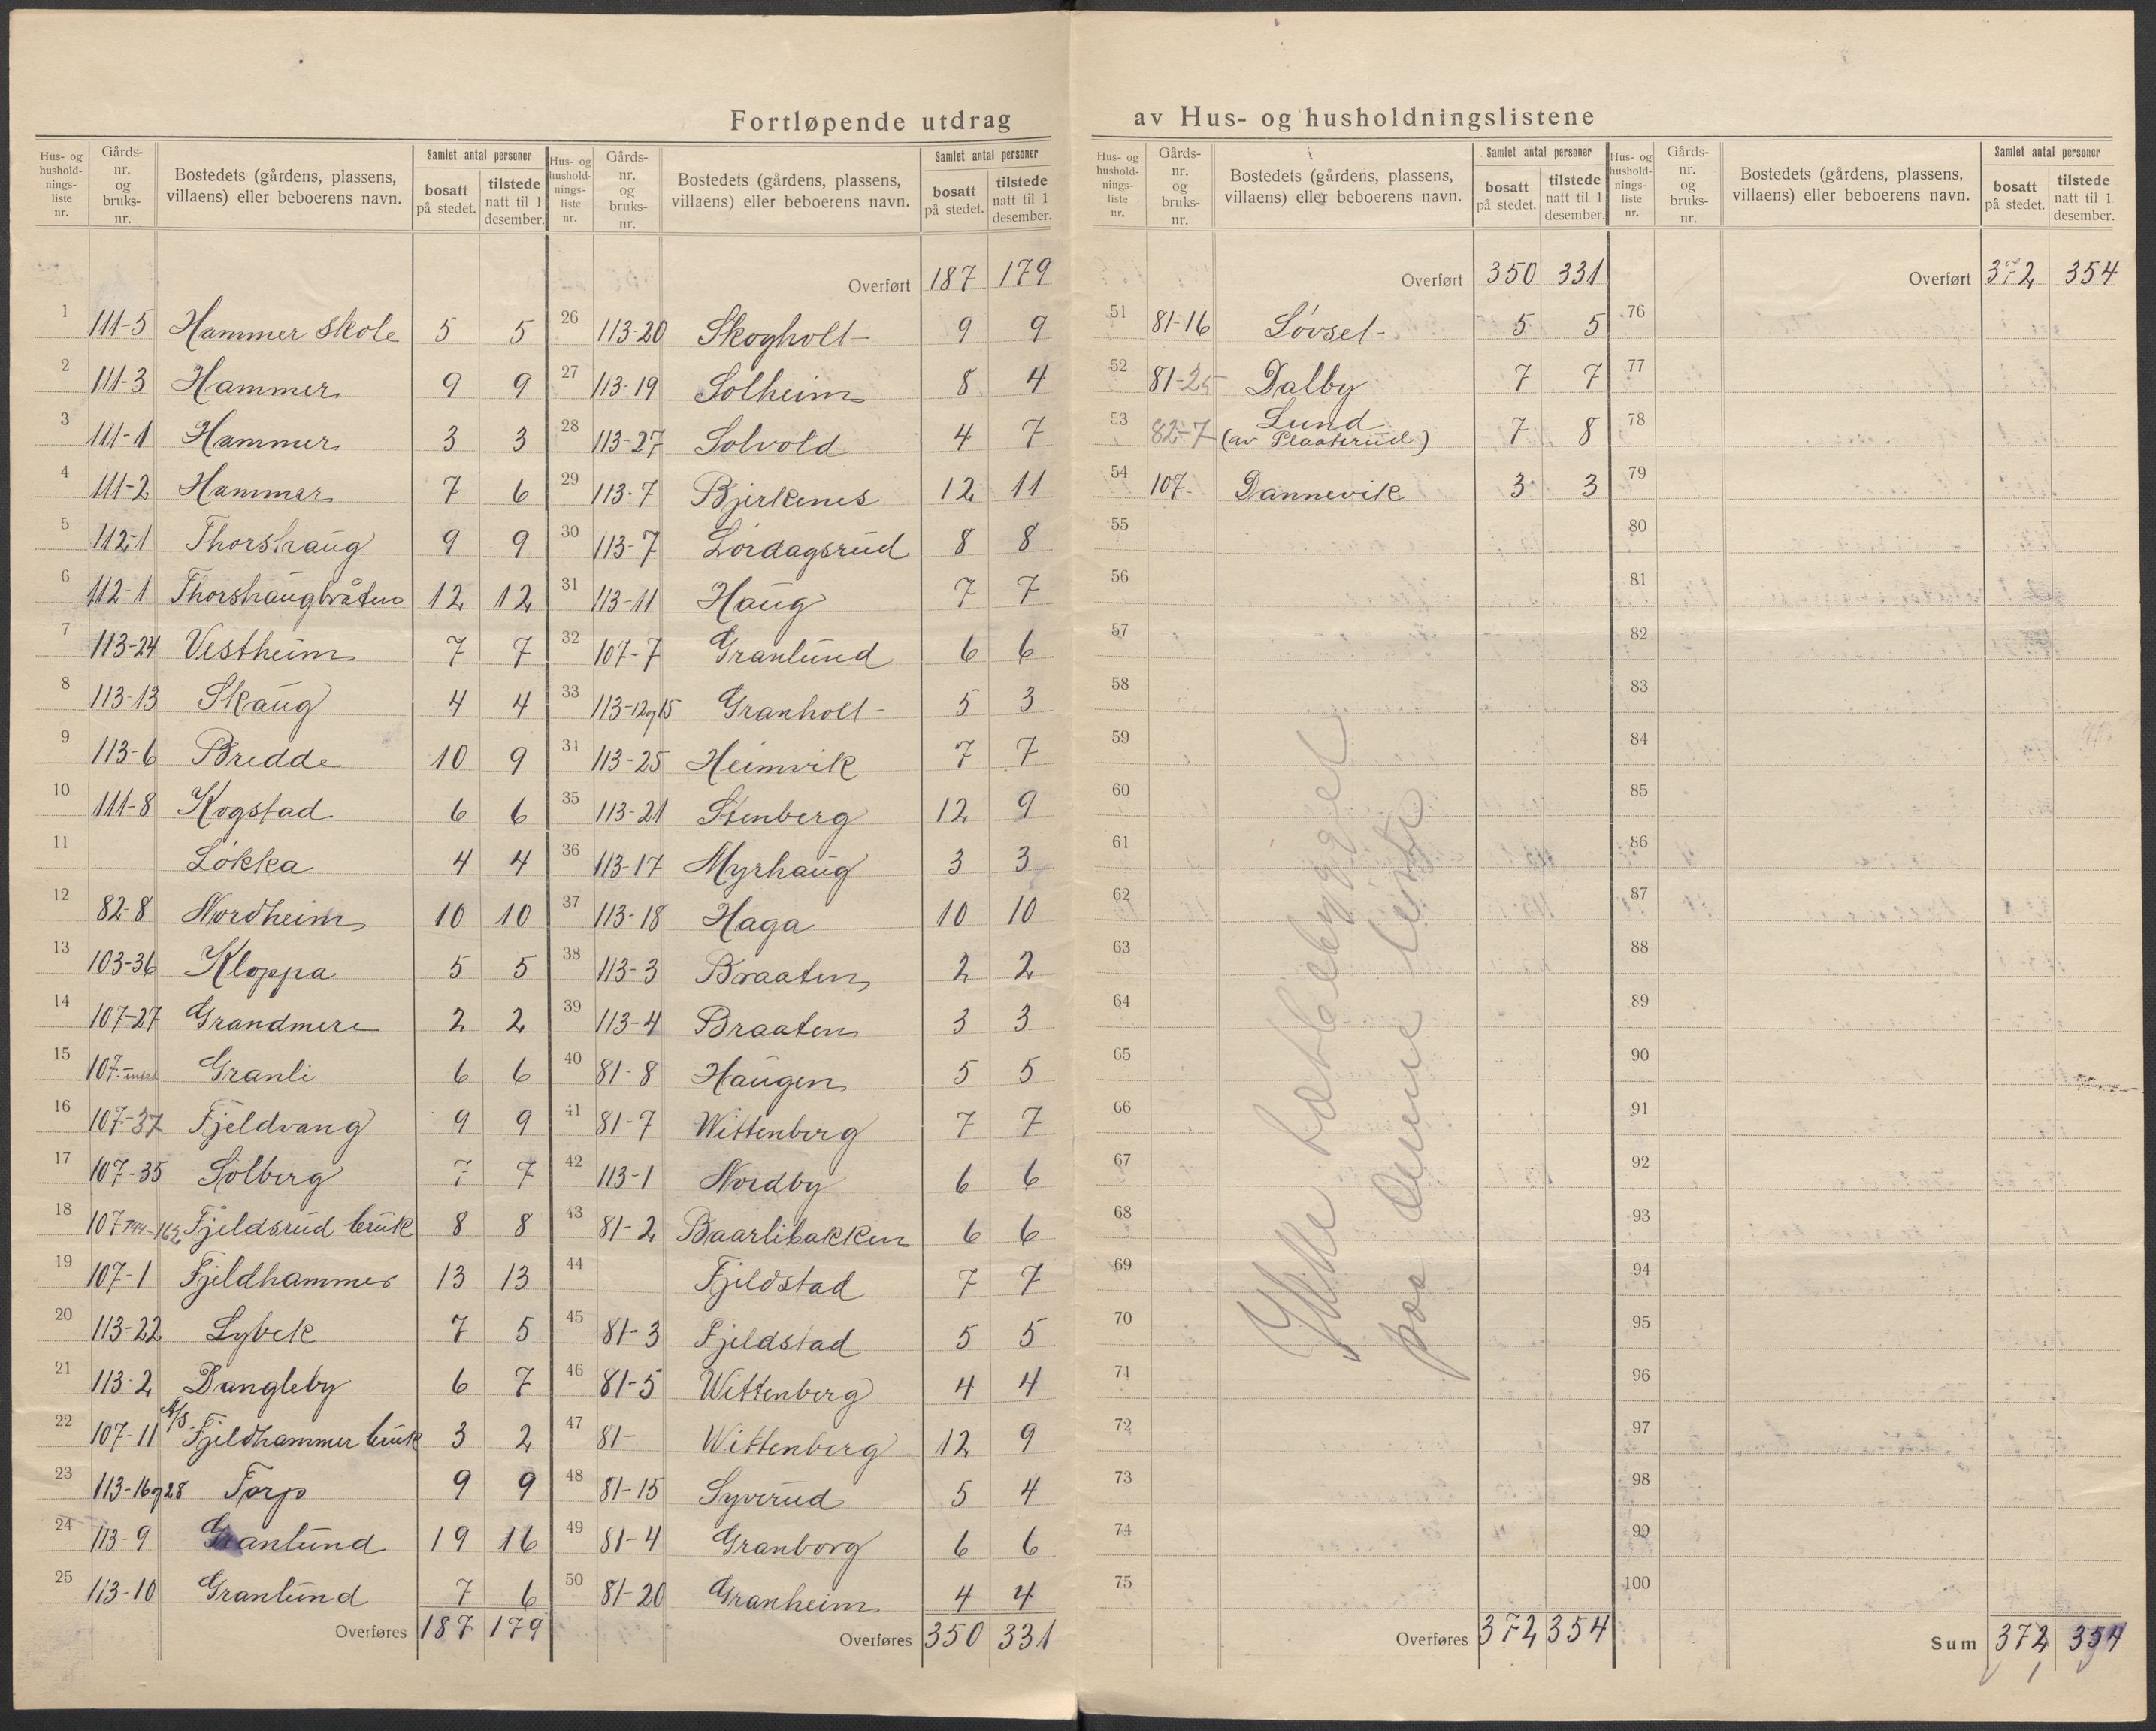 Fortløpende utdrag av Hus- og husholdningslistene
Hus- og husholdnings- liste nr. | Gårds- nr. og bruks- nr. | Bostedets (gårdens, plassens, villaens) eller beboerens navn. | Samlet antal personer | bosatt på stedet. | tilstede natt til 1 desember.
1 111-5 Hammer skole 5 5
2 111-3 Hammer 9 9
3 111-1 Hammer 3 3
4 111-2 Hammer 7 6
5 112-1 Thorshaug 9 9
6 112-1 Thorshaugbråten 12 12
7 113-24 Vestheim 7 7
8 113-13 Skaug 4 4
9 113-6 Bredde 10 9
10 111-8 Kogstad 6 6
11 Løkka 4 4
12 82-8 Nordheim 10 10
13 103-36 Kloppa 5 5
14 107-27 Grandmere 2 2
15 107- Granli 6 6
16 107-37 Fjeldvang 9 9
17 107-35 Solberg 7 7
18 107 Fjeldsrud bruk 8 8
19 107-1 Fjeldhammer 13 13
20 113-22 Lybek 7 5
21 113-2 Dangleby 6 7
22 107-11 A/S Fjeldhammer bruk 3 2
23 113-16og28 Torp 9 9
24 113-9 Granlund 19 16
25 113-10 Granlund 7 6
Overføres 187 179
Hus- og husholdnings- liste nr. | Gårds- nr. og bruks- nr. | Bostedets (gårdens, plassens, villaens) eller beboerens navn. | Samlet antal personer | bosatt på stedet. | tilstede natt til 1 desember.
Overført 187 179
26 113-20 Skogholt 9 9
27 113-19 Solheim 8 4
28 113-27 Solvold 4 7
29 113-7 Bjerkenes 12 11
30 113-7 Lørdagsrud 8 8
31 113-11 Haug 7 7
32 107-7 Granlund 6 6
33 113-12og15 Granholt 5 3
31 113-25 Heimvik 7 7
35 113-21 Stenberg 12 9
36 113-17 Myrhaug 3 3
37 113-18 Haga 10 10
38 113-3 Braaten 2 2
39 113-4 Braaten 3 3
40 81-8 Haugen 5 5
41 81-7 Wittenberg 7 7
42 113-1 Nordby 6 6
43 81-2 Baarlibakken 6 6
44 Fjeldstad 7 7
45 81-3 Fjeldstad 5 5
46 81-5 Wittenberg 4 4
47 81- Wittenberg 12 9
48 81-15 Syverud 5 4
49 81-4 Granborg 6 6
50 81-20 Granheim 4 4
Overføres 350 331
Hus- og husholdnings- liste nr. | Gårds- nr. og bruks- nr. | Bostedets (gårdens, plassens, villaens) eller beboerens navn. | Samlet antal personer | bosatt på stedet. | tilstede natt til 1 desember.
Overført 350 331
51 81-16 Løvset 5 5
52 81-25 Dalby 7 7
53 82-7 Lund (av Plaaterud) 7 8
54 107- Dannevik 3 3
55
56
57
58
59
60
61
62
63
64
65
66
67
68
69
70
71
72
73
74
75
Ikke tætbebygget
paa denne liste
Overføres 372 354
Hus- og husholdnings- liste nr. | Gårds- nr. og bruks- nr. | Bostedets (gårdens, plassens, villaens) eller beboerens navn. | Samlet antal personer | bosatt på stedet. | tilstede natt til 1 desember.
Overført 372 354
76
77
78
79
80
81
82
83
84
85
86
87
88
89
90
91
92
93
94
95
96
97
98
99
100
Sum 372 354